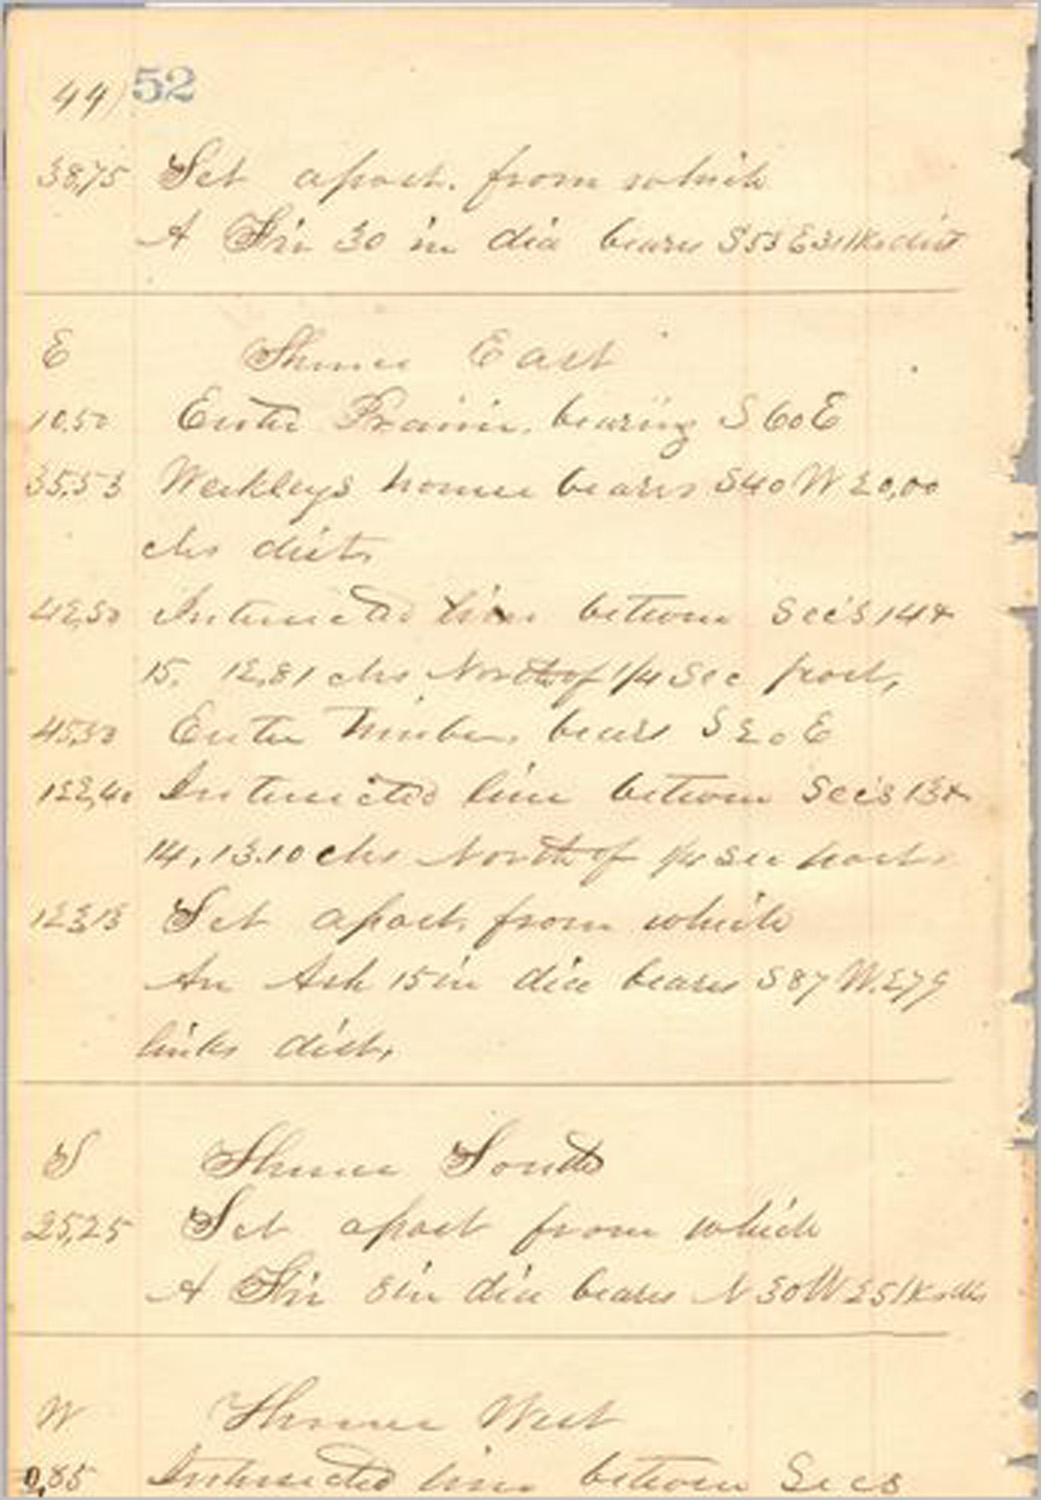 44) 52
38,75 Set a post. from which
A Fir 30 in dia bears S 53 E 31 lks dist
E Thence East
10.50 Enter Prairie. bearing S 60 E
35.53 Weekleys house bears S 40 W 20,00
chs dist,
42,50 Intersected line between Sec's 14 &
15. 12,81 chs North of 1/4 Sec post,
45,50 Enter Timber. bears S 20 E
122,40 Intersected line between Sec's 13 &
14, 13.10 chs North of 1/4 Sec post
123,13 Set a post. from which
An Ash 15 in dia bears S 87 W. 279
links dist,
S Thence South
25,25 Set a post from which
A Fir 8 in dia bears N 30 W 251 lks
W Thence West
0,85 Intersected line between Secs